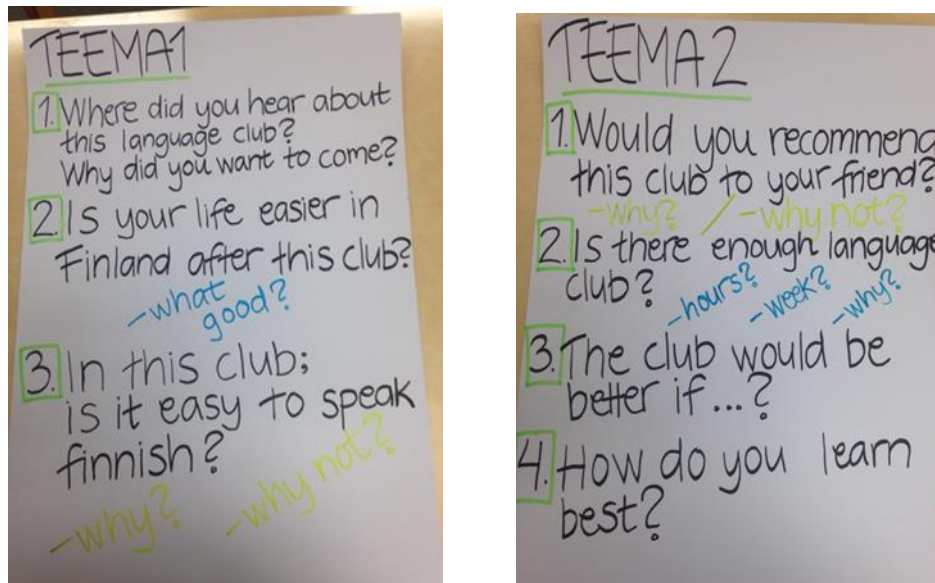 TEEMA1
1. Where did you hear about
this language club?
Why did you want to come?
2. Is your life easier in
Finland after this club?
-what
good?
3. In this club;
is it easy to speak
finnish?
-why? -why not?
TEEMA 2
1. Would you recommend
this club to your friend?
-why? / -why not?
2. Is there enough language
club? -hours? -week? -why?
3. The club would be
better if...?
4. How do you learn
best?